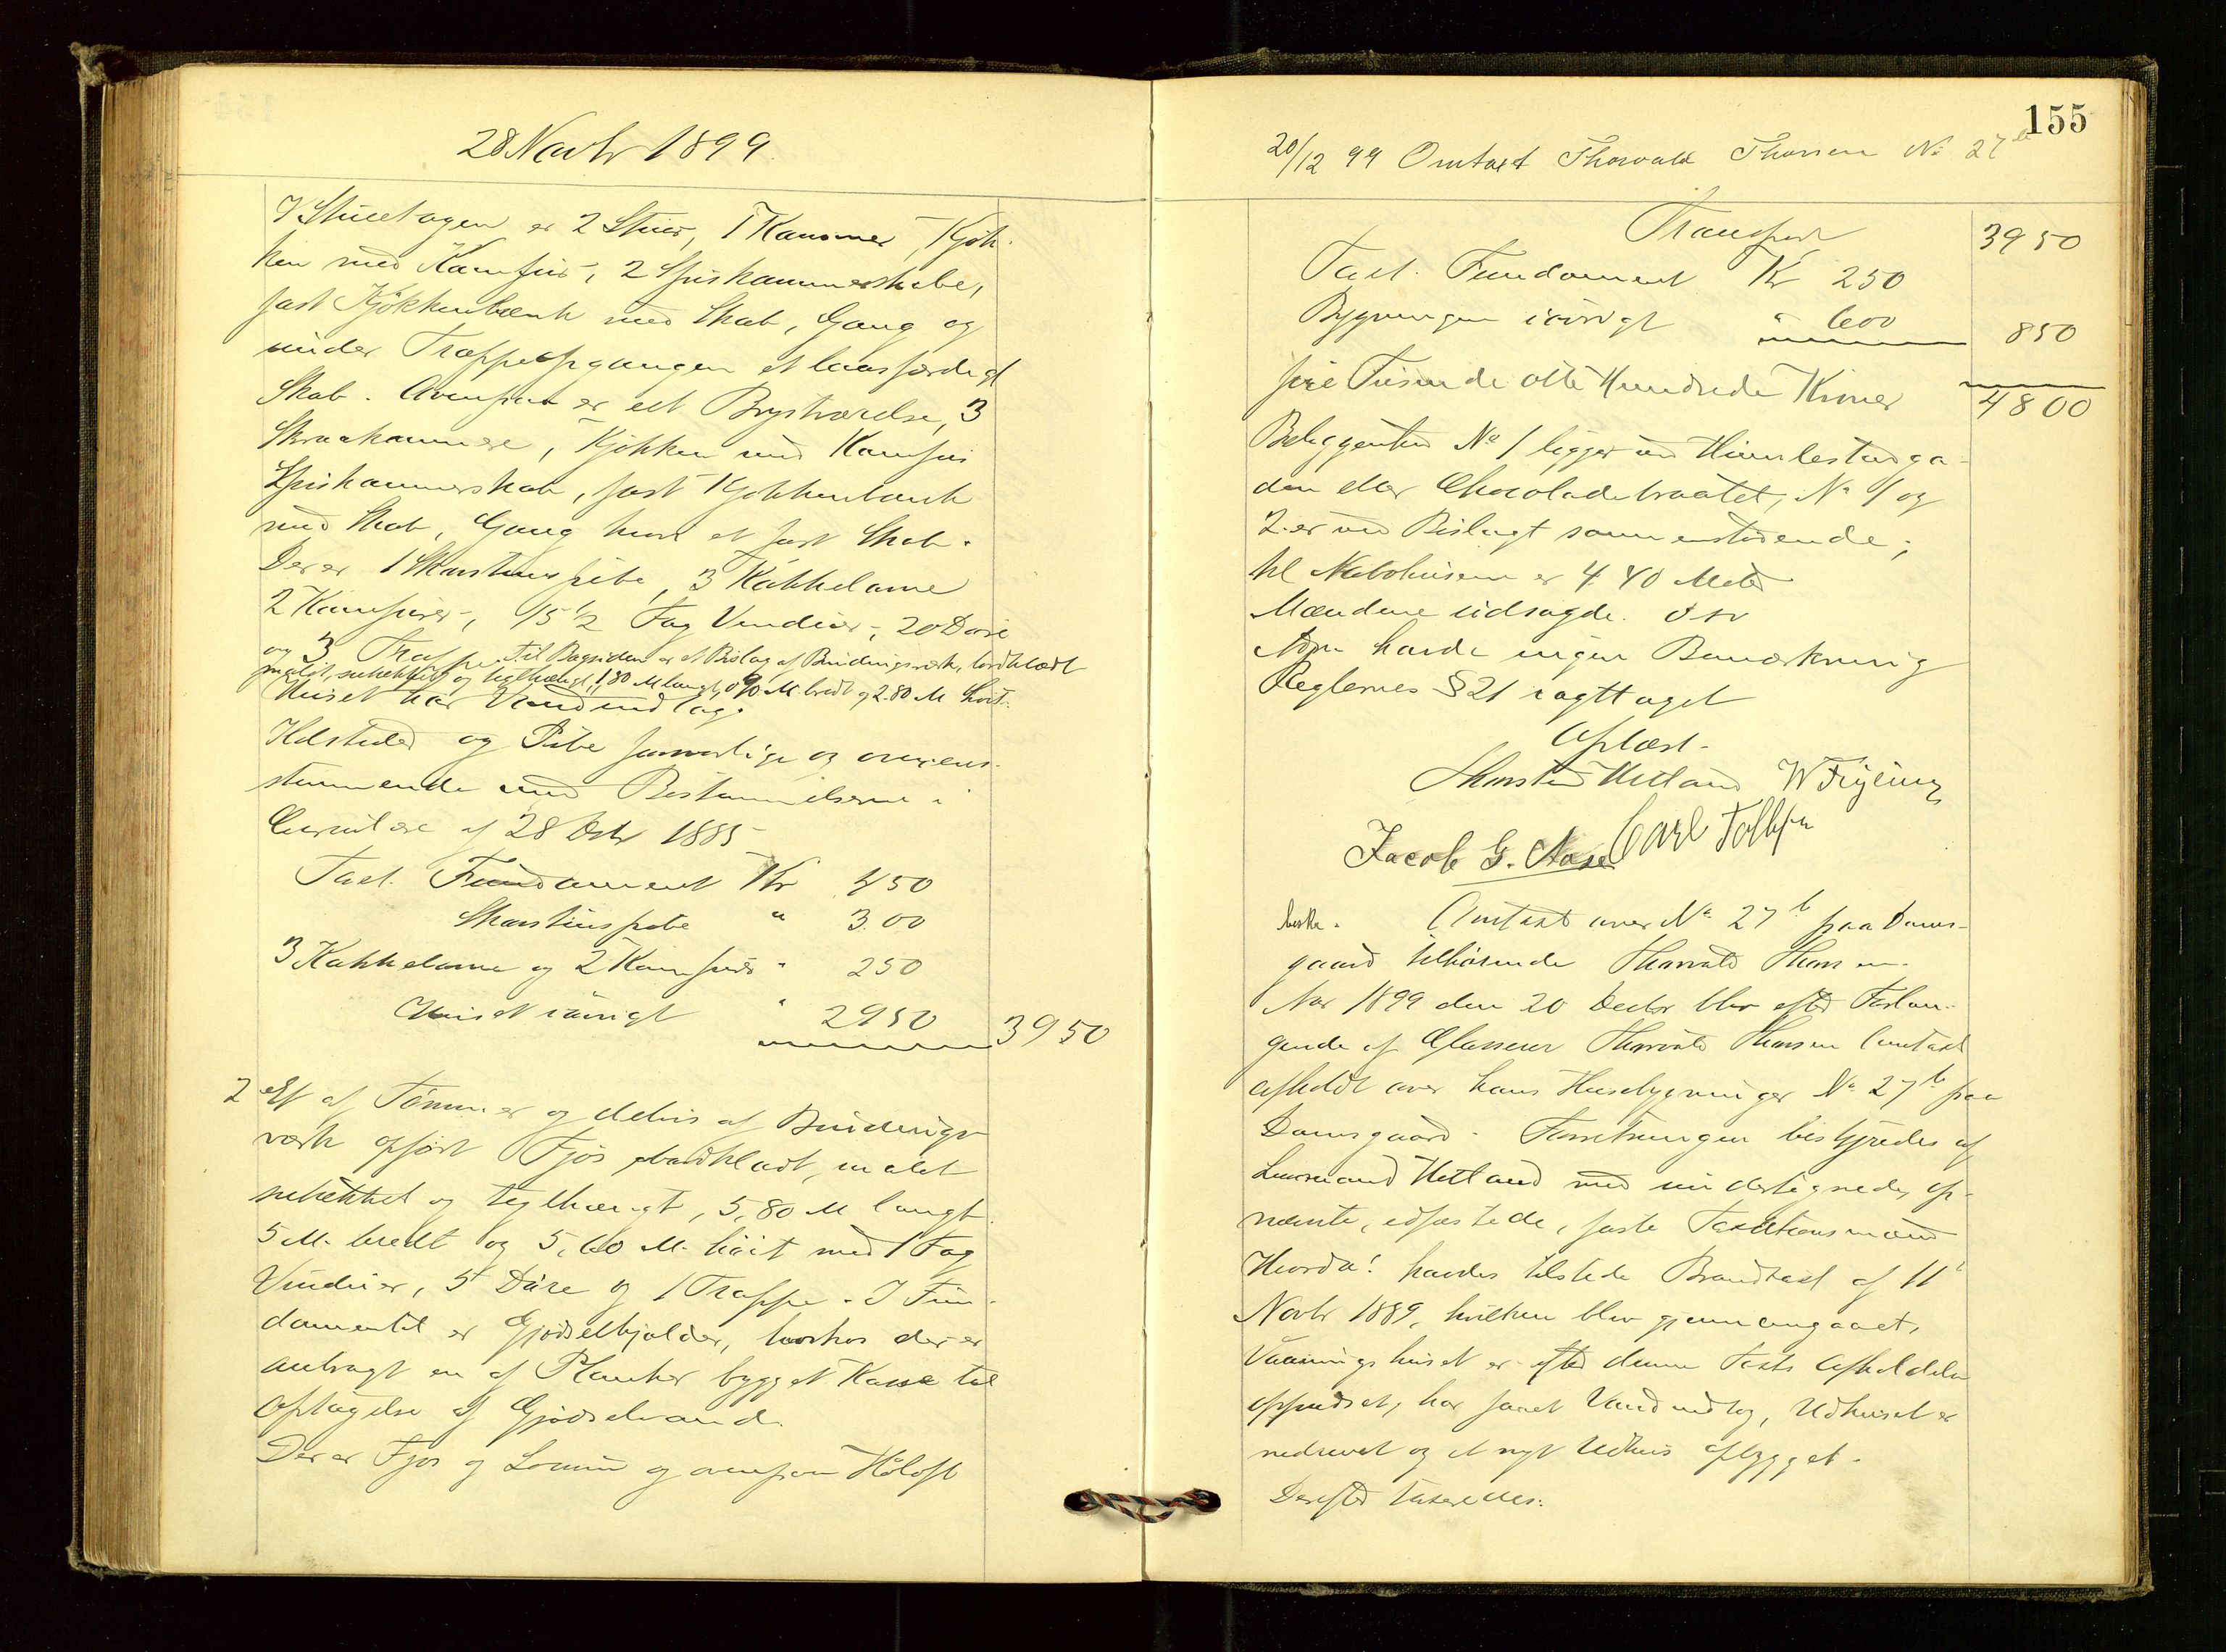 28 Novbr 1899.
I Stueetagen er 2 Stuer, 1 Kammer, Kjøk-
ken med Komfur, 2 Spiskammerskabe,
fast Kjøkkenbænk med Skab, Gang og
under Trappeopgangen et laasfærdigt
Skab. Ovenpaa er ett Brystværelse, 3
Skraakammere, Kjøkken med Komfur
Spiskammerskab, fast Kjøkkenbænk
med Skab, Gang hvori et fast Skab.
Der er 1 Skorstenspibe, 3 Kakkelovne
2 Komfurer, 15 1/2 Fag Vinduer, 20 Døre
og 3 Trapper. Til Bagsiden er et Bislag af Bindingsværk, bordklædt
malet, enkeltet og teglhængt, 1,80 M langt, 0,90 M bredt og 2.80 M høit.
Huset har Vandindlæg.
Ildsteder og Pibe forsvarlige og overens-
stemmende med Bestemmelserne i
Circulære af 28 Oktr 1885
Taxt. Fundament Kr 450
Skorstenspibe " 300
3 Kakkelovne og 2 Komfurer " 250
Huset iøvrigt " 2950 3950
2 Et af Tømmer og delvis af Bindings-
værk opført Fjøs bordklædt, malet
enkeltet og teglhængt, 5,80 M langt
5 M. bredt og 5,60 M. høit med 1 Fag
Vinduer, 5 Døre og 1 Trappe. I Fun-
damentet er Gjødselkjelder, hvorhos der er
anbragt en af Planker bygget Kasse til
Optagelse af Gjødselvand.
Der er Fjøs og og ovenpaa Høloft
155
20/12 99 Omtaxt Thorvald Thorsen No 27 b
Transport 3950
Taxt. Fundament Kr 250
Bygningen iøvrigt " 600 850
fire Tusinde otte Hundrede Kroner 4800
Beliggenhed No 1 ligger ved Himlestadga-
den eller Chocoladekraatet, No 1 og
2 er ved Bislaget sammenstødende;
til Nabohusene er 4.40 Meter
Mændene udsagde. osv
havde ingen Bemærkning
Reglernes § 21 iagttaget
Oplæst.
Thorsten Hetland W Frijling
Jacob G. Nase Carl Tollefsen
Omtaxt over No 27 b paa Dams-
gaard tilhørende Thorvald Thorsen.
Aar 1899 den 20 Decbr blev efter Forlan-
gende af Thorvald Thorsen Omtaxt
afholdt over hans Husebygninger No 27 b paa
Damsgaard. Forretningen bestyredes af
Lensmand Hetland med undertegnede, op-
nævnte, edfæstede, faste Taxationsmænd
Hvorda! havdes tilstede Brandtaxt af 11'
Novbr 1889, hvilken blev gjennemgaaet,
Vaaningshuset er efter denne Taxts Afholdelse
oppudset, har faaet Vandindlæg, Udhuset er
nedrevet og et nyt Udhus opbygget.
Derefter taxeredes: